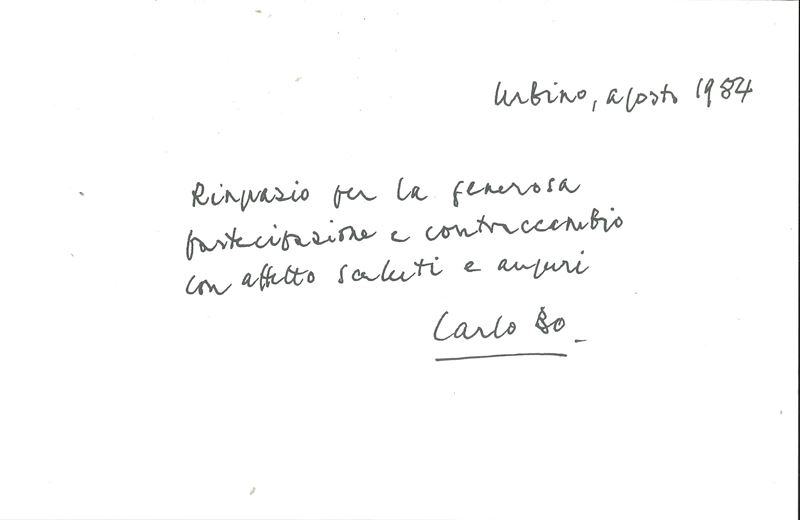 Urbino, agosto 1984
Ringrazio per la generosa
partecipazione e contraccambio
con affetto saluti e auguri
Carlo Bo